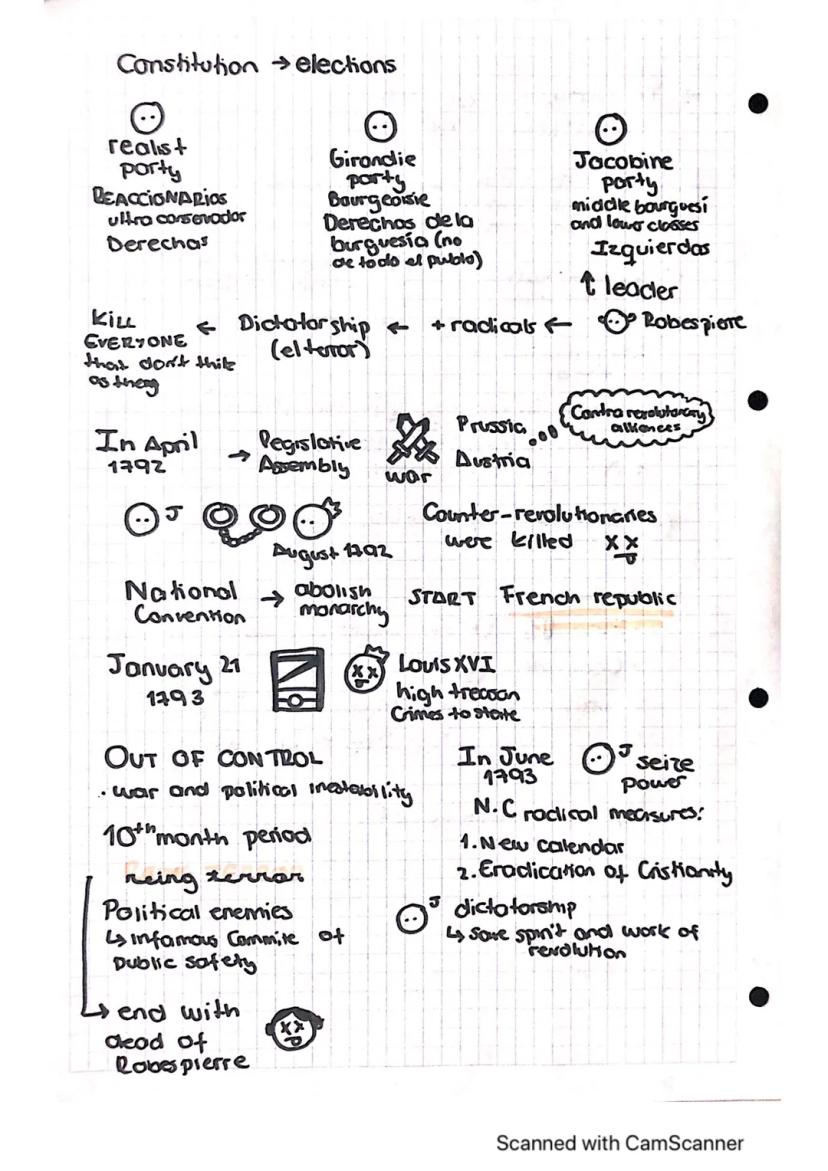 Constitution → elections
realist
party
REACCIONARIOS
ultra conservador
Derechas
Girondie
party
Bourgeoisie
Derechos de la
burguesía (no
de todo el publo)
Jacobine
party
middle bourguesi
and lower classes
Izquierdas
↑ leader
Robespierre
← + radicals
← Dictatorship
(el terror)
← Kill
EVERYONE
that don't thik
as they
In April
1792
→ Legislative
Assembly
war
Prussia
Austria
Contra revolutionary
alliences
J
August 1792
Counter-revolutionaries
were killed xx
National
Convention
→ abolish
monarchy
START French republic
January 21
1793
xx
Louis XVI
high treason
Crimes to state
OUT OF CONTROL
· war and political inestability
10th month period
reing terror
Political enemies
↳ infamous Commite of
public safety
↳ end with
dead of
Robespierre
xx
In June
1793
J seize
power
N.C radical measures:
1. New calendar
2. Eradication of Cristianity
J dictatorship
↳ save spirit and work of
revolution
Scanned with CamScanner